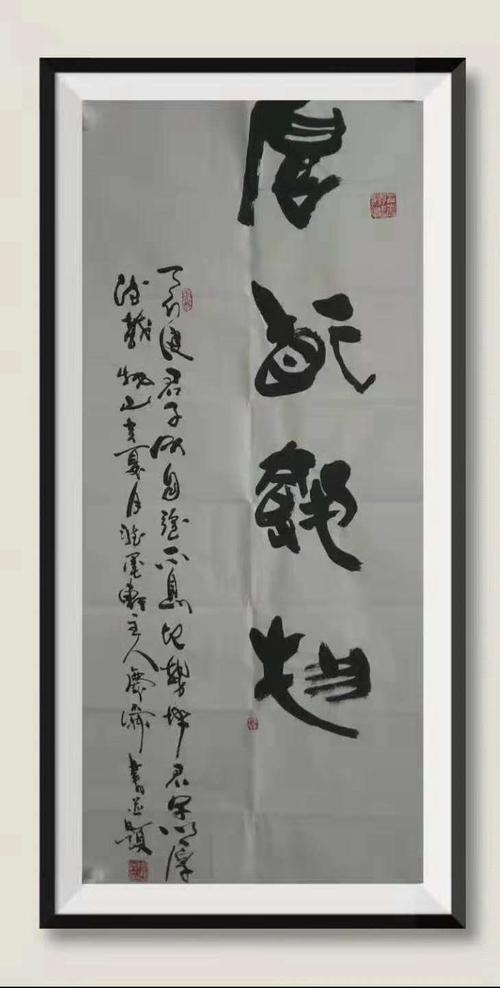 厚德載物
天行健君子以自強不息地勢坤君子以厚
德載物夏月墨軒主人書並題